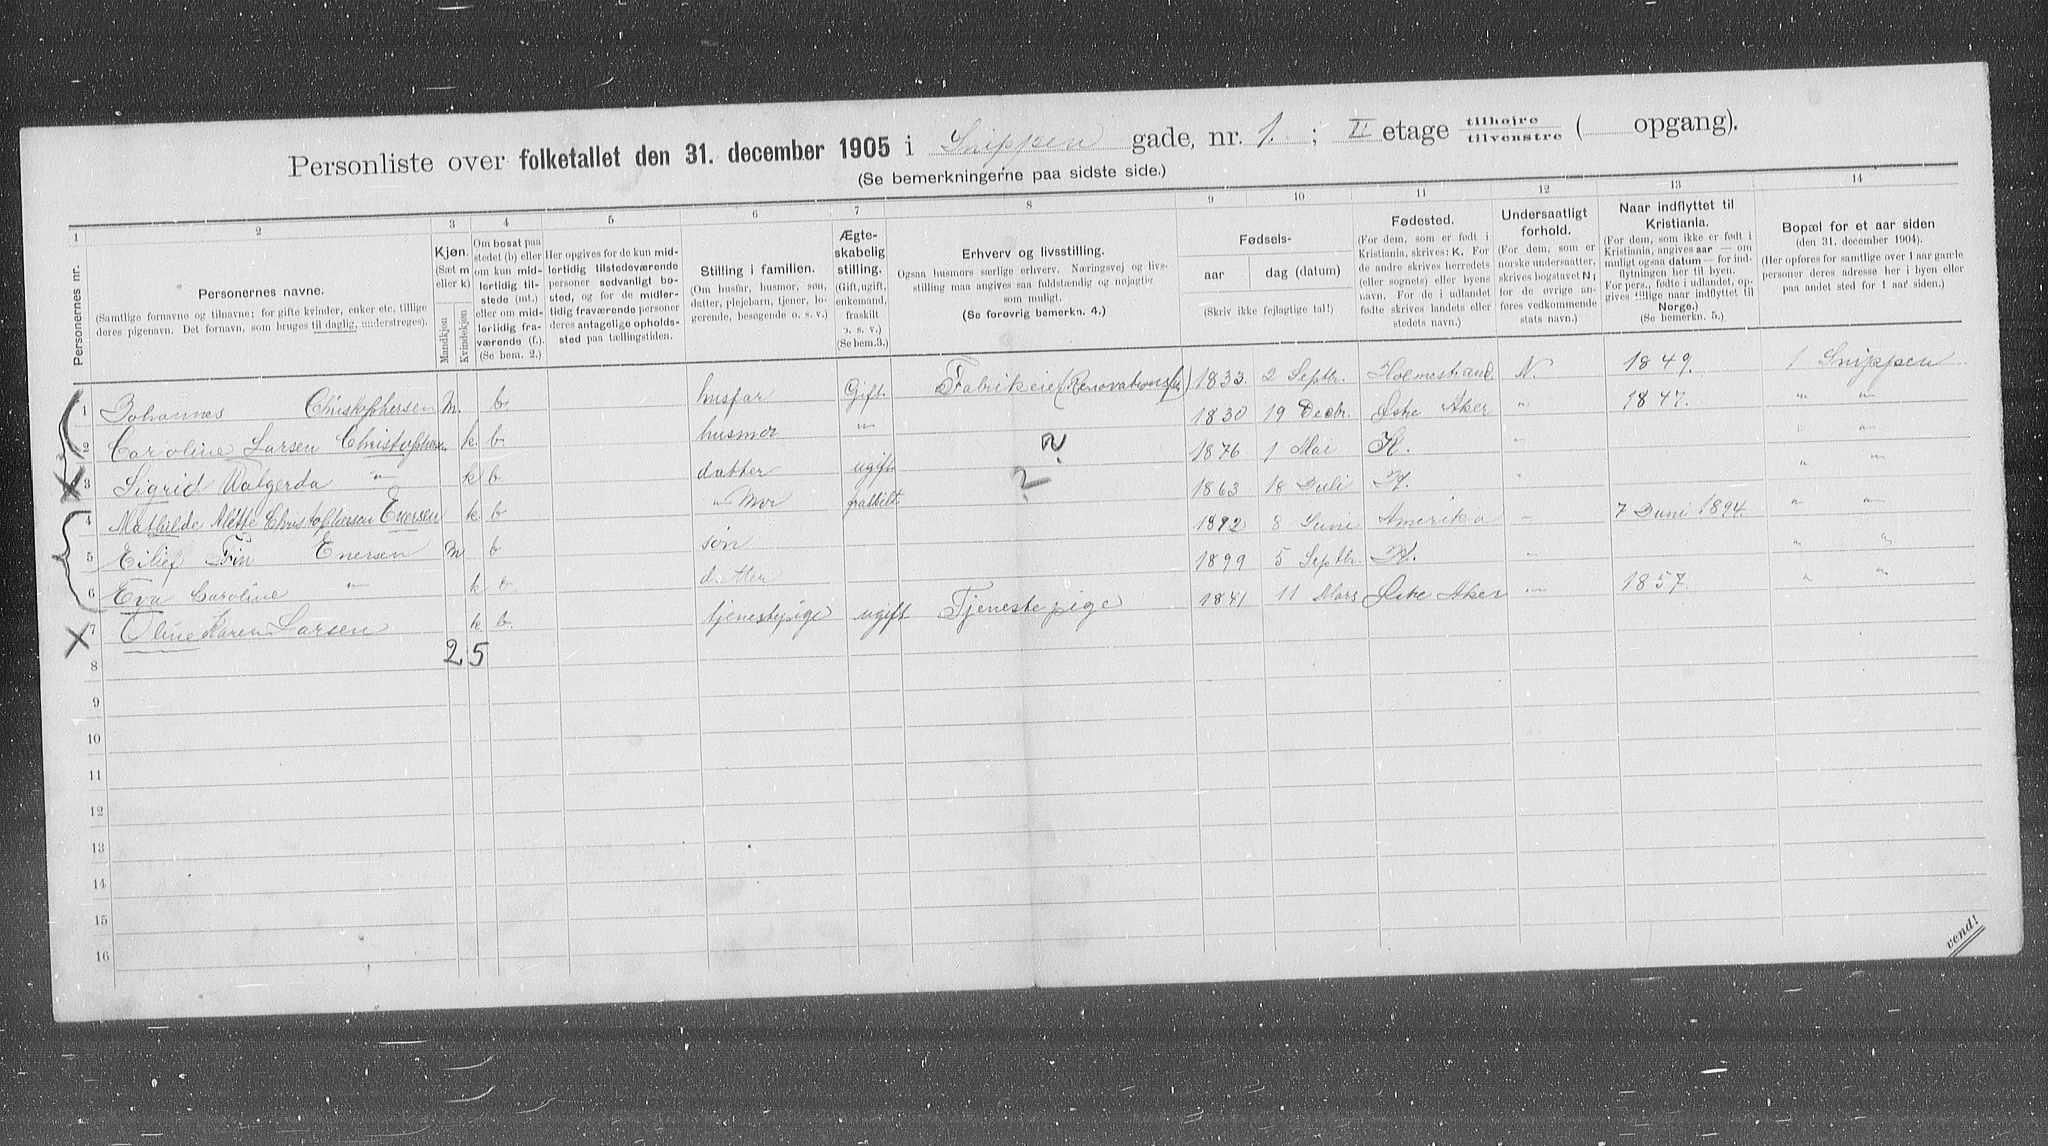 Personliste over folketallet den 31. december 1905 i Snippen gade, nr. 1. ; II etage tilhøjre tilvenstre ( opgang).
(Se bemerkningerne paa sidste side.)
1 2 3 4 5 6 7 8 9 10 11 12 13 14
Personernes nr.
Personernes navne.
(Samtlige fornavne og tilnavne; for gifte kvinder, enker etc. tillige
deres pigenavn. Det fornavn, som bruges til daglig, understreges).
Kjøn.
(Sæt m
eller k)
Mandkjøn
Kvindekjøn
Om bosat paa
stedet (b) eller
om kun mid-
lertidig til-
stede (mt.)
eller om mid-
lertidig fra-
værende (f.).
(Se bem. 2.)
Her opgives for de kun mid-
lertidig tilstedeværende
personer sedvanligt bo-
sted, og for de midler-
tidig fraværende personer
deres antagelige opholds-
sted paa tællingstiden.
Stilling i familien.
(Om husfar, husmor, søn,
datter, plejebarn, tjener, lo-
gerende, besøgende o. s. v.)
Ægte-
skabelig
stilling.
(Gift, ugift,
enkemand,
fraskilt
o. s. v.)
(Se bem.3.)
Erhverv og livsstilling.
Ogsaa husmors særlige erhverv. Næringsvej og livs-
stilling maa angives saa fuldstændig og nøjagtig
som muligt.
(Se forøvrig bemerkn. 4.)
Fødsels-
aar dag (datum)
(Skriv ikke fejlagtige tal!)
Fødested.
(For dem, som er født i
Kristiania, skrives: K. For
de andre skrives herredets
(eller sognets) eller byens
navn. For de i udlandet
fødte skrives landets eller
stedets navn.)
Undersaatligt
forhold.
(For dem, som er
norske undersaatter,
skrives bogstavet N;
for de øvrige an-
føres vedkommende
stats navn.)
Naar indflyttet til
Kristiania.
(For dem, som ikke er født i
Kristiania, angives aar — om
muligt ogsaa datum — for ind-
flytningen her til byen.
For pers., fødte i udlandet, op-
gives tillige naar indflyttet til
Norge.)
(Se bemerkn. 5.)
Bopæl for et aar siden
(den 31. december 1904).
(Her opføres for samtlige over 1 aar gamle
personer deres adresse her i byen eller
paa andet sted for 1 aar siden.)
1 Johannes Christophersen M. b. husfar Gift. Fabrikeier (Renovations 1833. 2 Septbr. Holmestrand N. 1849. 1 Snippen
2 Caroline Larsen Christophersen k. b. husmor " 1830 19 Decbr. Østre Aker " 1847. " "
3 Sigrid Valgerda " k b datter ugift ? 1876 1 Mai K. " " "
4 Mathilde Alette Christophersen Enersen k. b " Mor fraskilt ? 1863 18 Juli K. " " "
5 Eilief Fin Enersen M b søn 1892 8 Juni Amerika " 7 Juni 1894. " "
6 Eva Caroline " k b datter 1899 5 Septbr. K. " " "
7 Oline Karen Larsen k b. tjenestepige ugift Tjenestepige 1841 11 Mars Østre Aker " 1857. " "
8 2 5
9
10
11
12
13
14
15
16
vend!